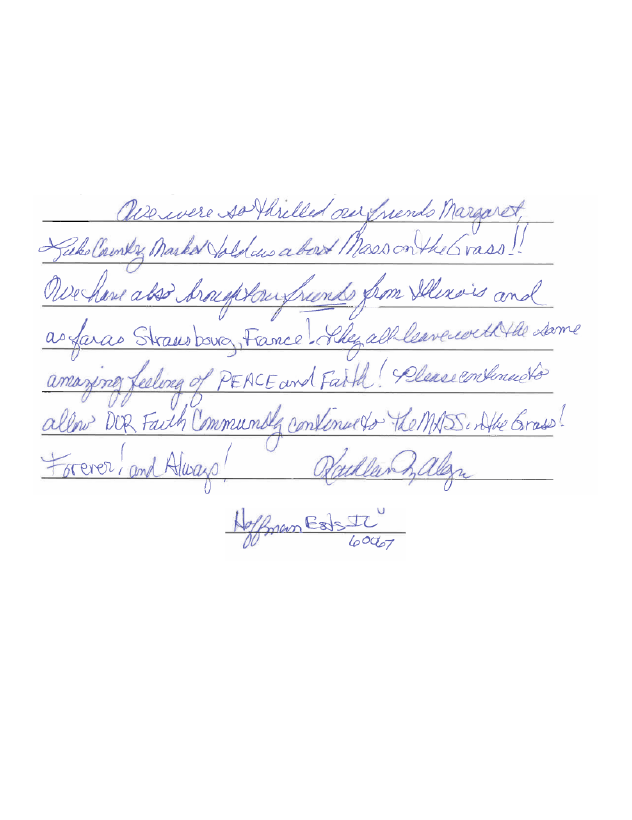 We were so thrilled our friends Margaret,
Lake Country Market told us about Mass on the Grass!!
We have also brought our friends from Illinois and
as far as Strausbourg, France! They all leave with the same
amazing feeling of PEACE and Faith! Please continue to
allow OUR Faith Community continue to The MASS in the Grass!
Forever! and Always!
Hoffman Ests IL
60067